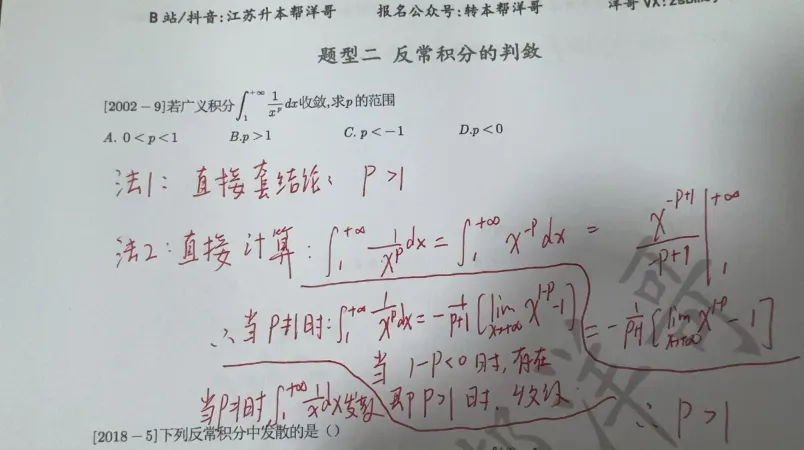 B站/抖音:江苏升本帮洋哥 报名公众号:转本帮洋哥 洋哥VX:
题型二 反常积分的判敛
[2002-9]若广义积分∫₁^{+∞} 1/x^p dx收敛,求p的范围
A. 0<p<1 B.p>1 C. p<-1 D.p<0
法1: 直接套结论: P>1
法2:直接计算: ∫₁^{+∞} 1/x^p dx = ∫₁^{+∞} x^{-p} dx = x^{-p+1}/(-p+1) |₁^{+∞}
= -1/(p+1) [lim_{x→+∞} x^{1-p} - 1]
∴当P≠1时: ∫₁^{+∞} 1/x^p dx = -1/(p+1) [lim_{x→+∞} x^{1-p} - 1]
当 1-P<0 时, 存在
即 P>1 时, 收敛
当P=1时, ∫₁^{+∞} 1/x dx发散
∴ P>1
[2018-5]下列反常积分中发散的是()